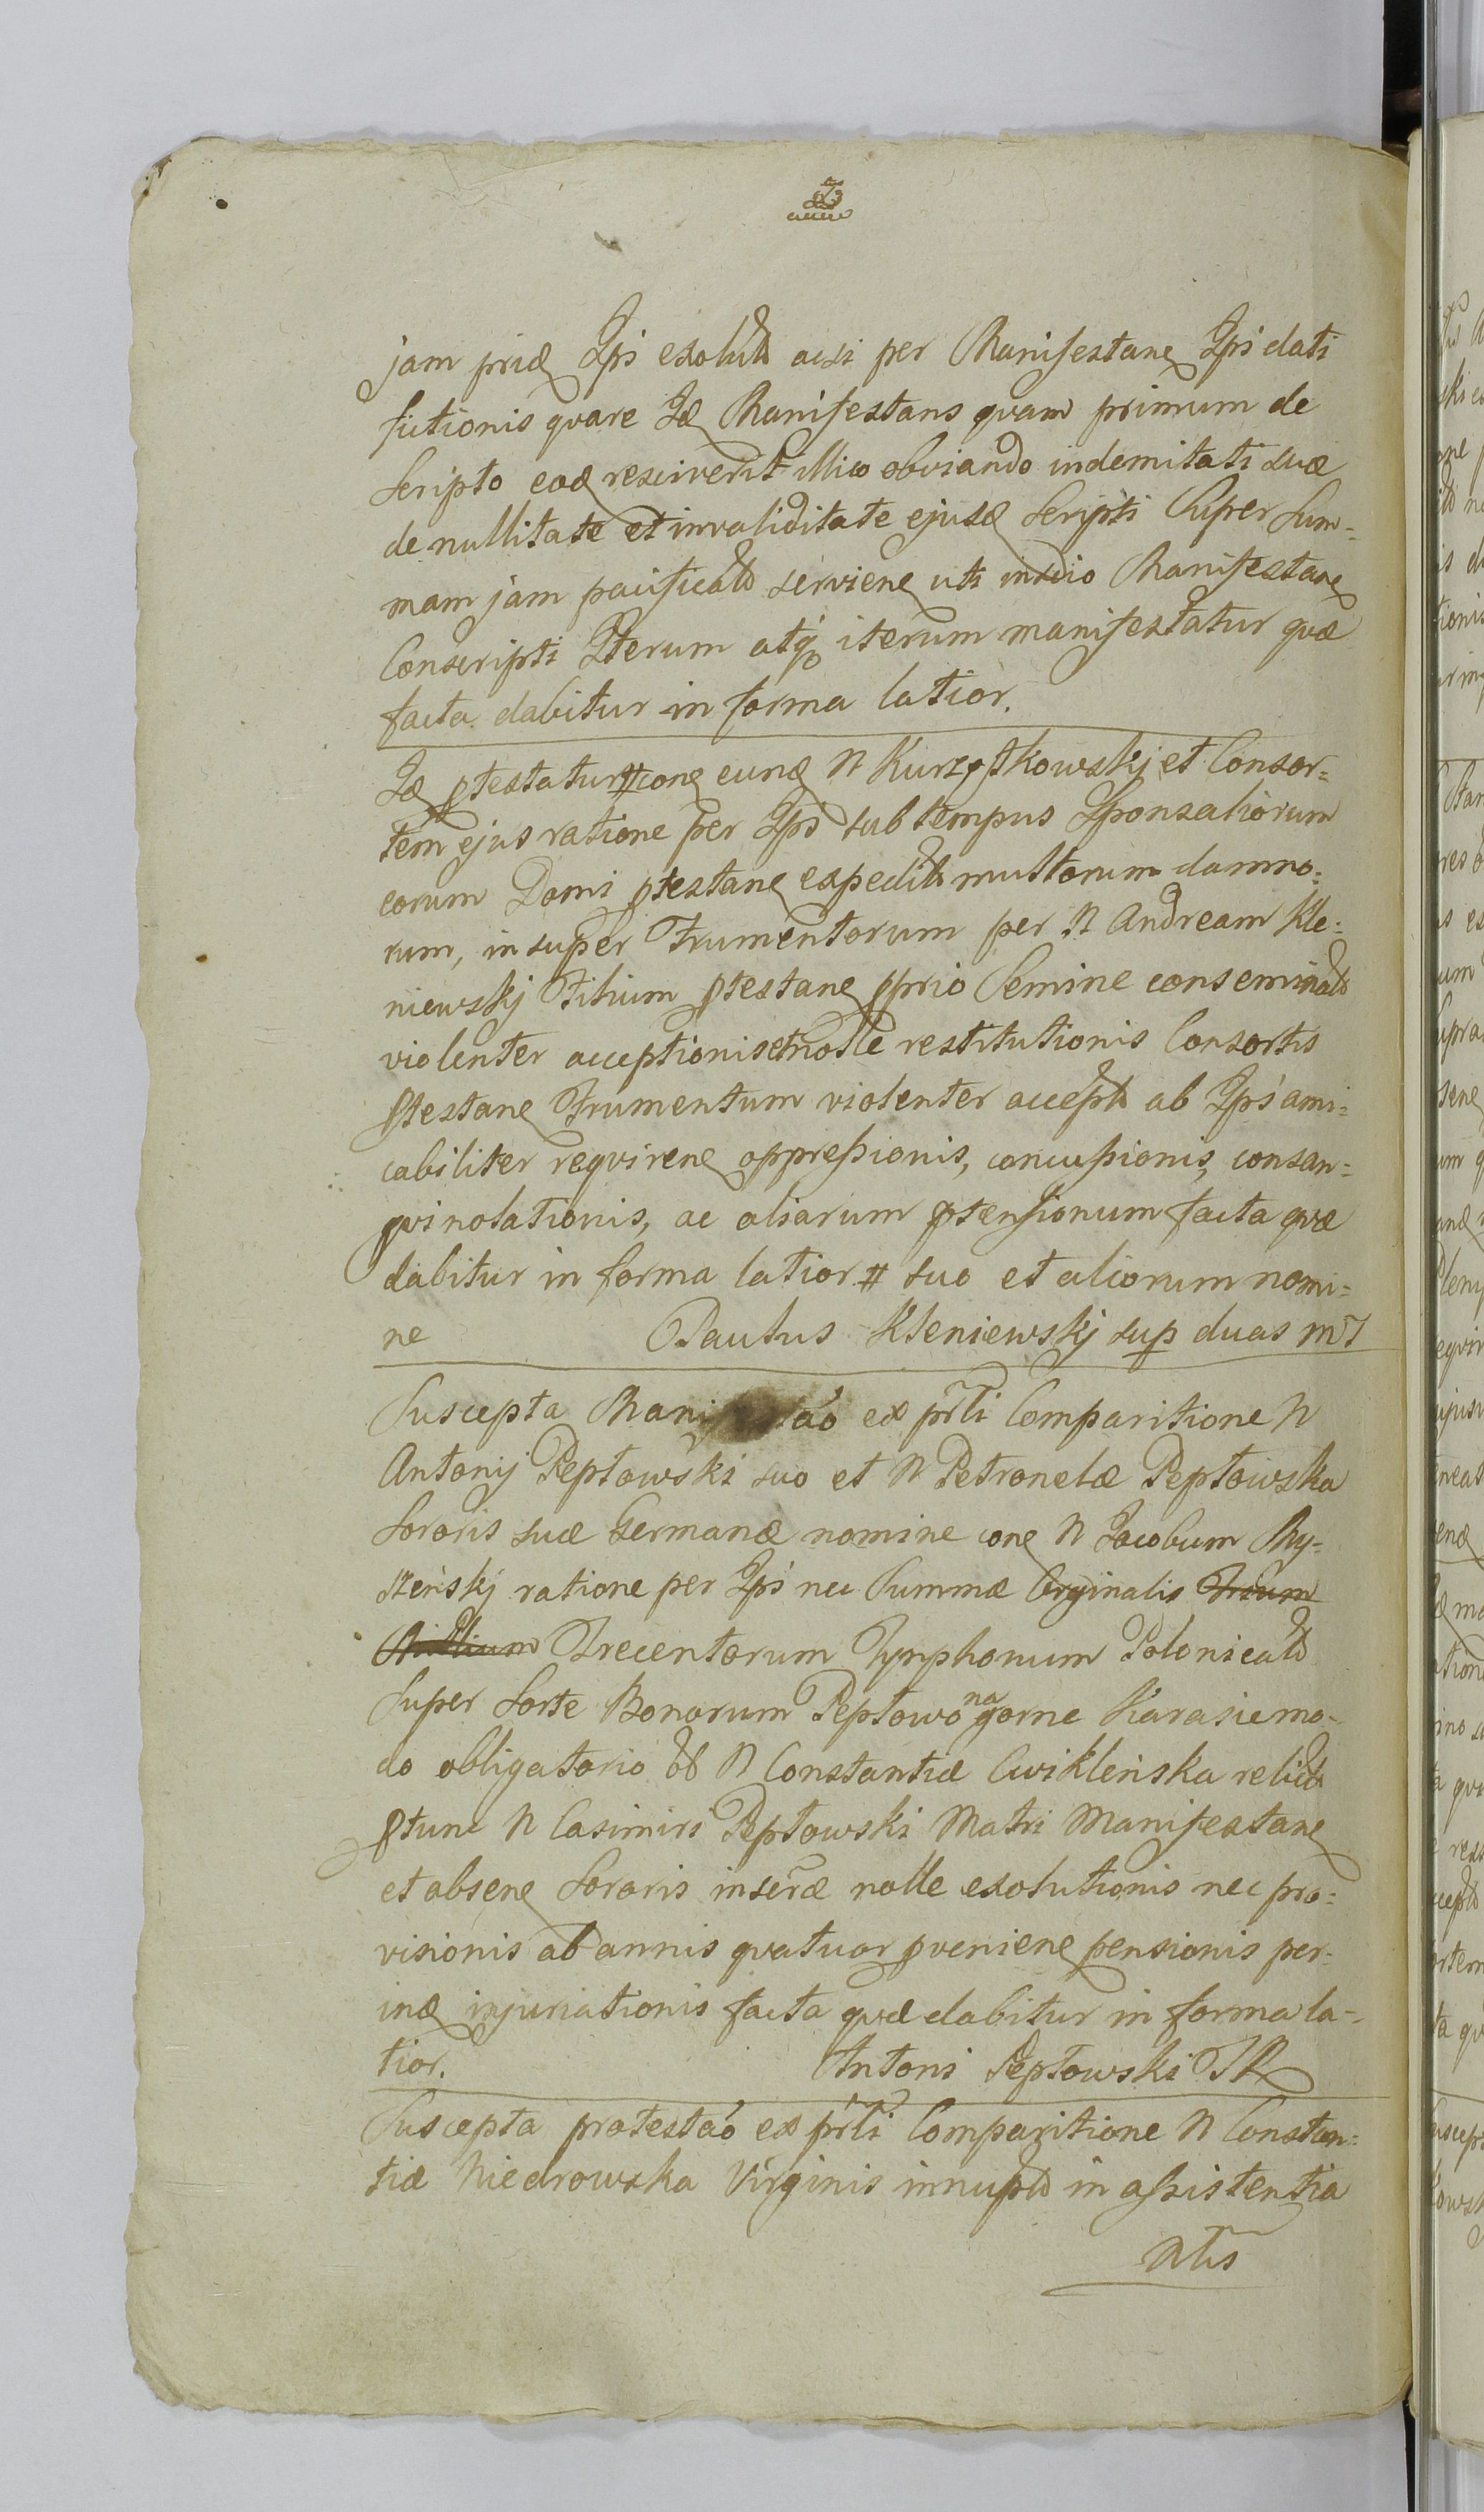 jam prid Ips exolut acsi per Manifestan Ips dati
fictionis qvare Id Manifestans qvam primum de
Scripto eod resciverit illico obviando indemitati suæ
de nullitate et invaliditate ejusd Scripti Super Sum=
mam jam pacificat servien uti indio Manifestan
Conscripti Iterum atq iterum manifestatur qvæ
facta dabitur in forma latior.
Id ptestatur # con eund N Kurzątkowskj et Consor=
tem ejus ratione per Ips sub tempus Sponsaliorum
eorum Domi ptestan expedit multorum damno=
rum, in super Frumentorum per N Andream Kle=
niewskj Filium ptestan pprio Semine conseminat
violenter acceptionis et nolle restitutionis Consortis
ptestan Frumentum violenter accept ab Ips ami=
cabiliter reqviren oppressionis, concussionis, consan=
gvinolationis, ac aliarum ptensionum facta qvæ
dabitur in forma latior # suo et aliorum nomi=
ne Paulus Kleniewskj sup duas mt
Suscepta Manifestao ex prli Comparitione N
Antonij Pepłowski suo et N Petronelæ Pepłowska
Sororis suæ Germanæ nomine con N Jacobum My=
stenskj ratione per Ips nec Summæ Orginalis Trium
Millium Trecentorum Tynphonum Polonicat
Super Sorte Bonorum Pepłowo na gorne Karasie mo=
do obligatorio ob N Constantiæ Cwiklenska relict
ptunc N Casimiri Pepłowski Matri Manifestan
et absen Sororis inseræ nolle exolutionis nec pro=
visionis ab annis qvatuor pvenien pensionis per=
ind injuriationis facta qvæ dabitur in forma la=
tior. Antoni Pepłowski TR
Suscepta protestao ex prli Comparitione N Constan=
tiæ Niedrowska Virginis innupt in assistentia
Nlis